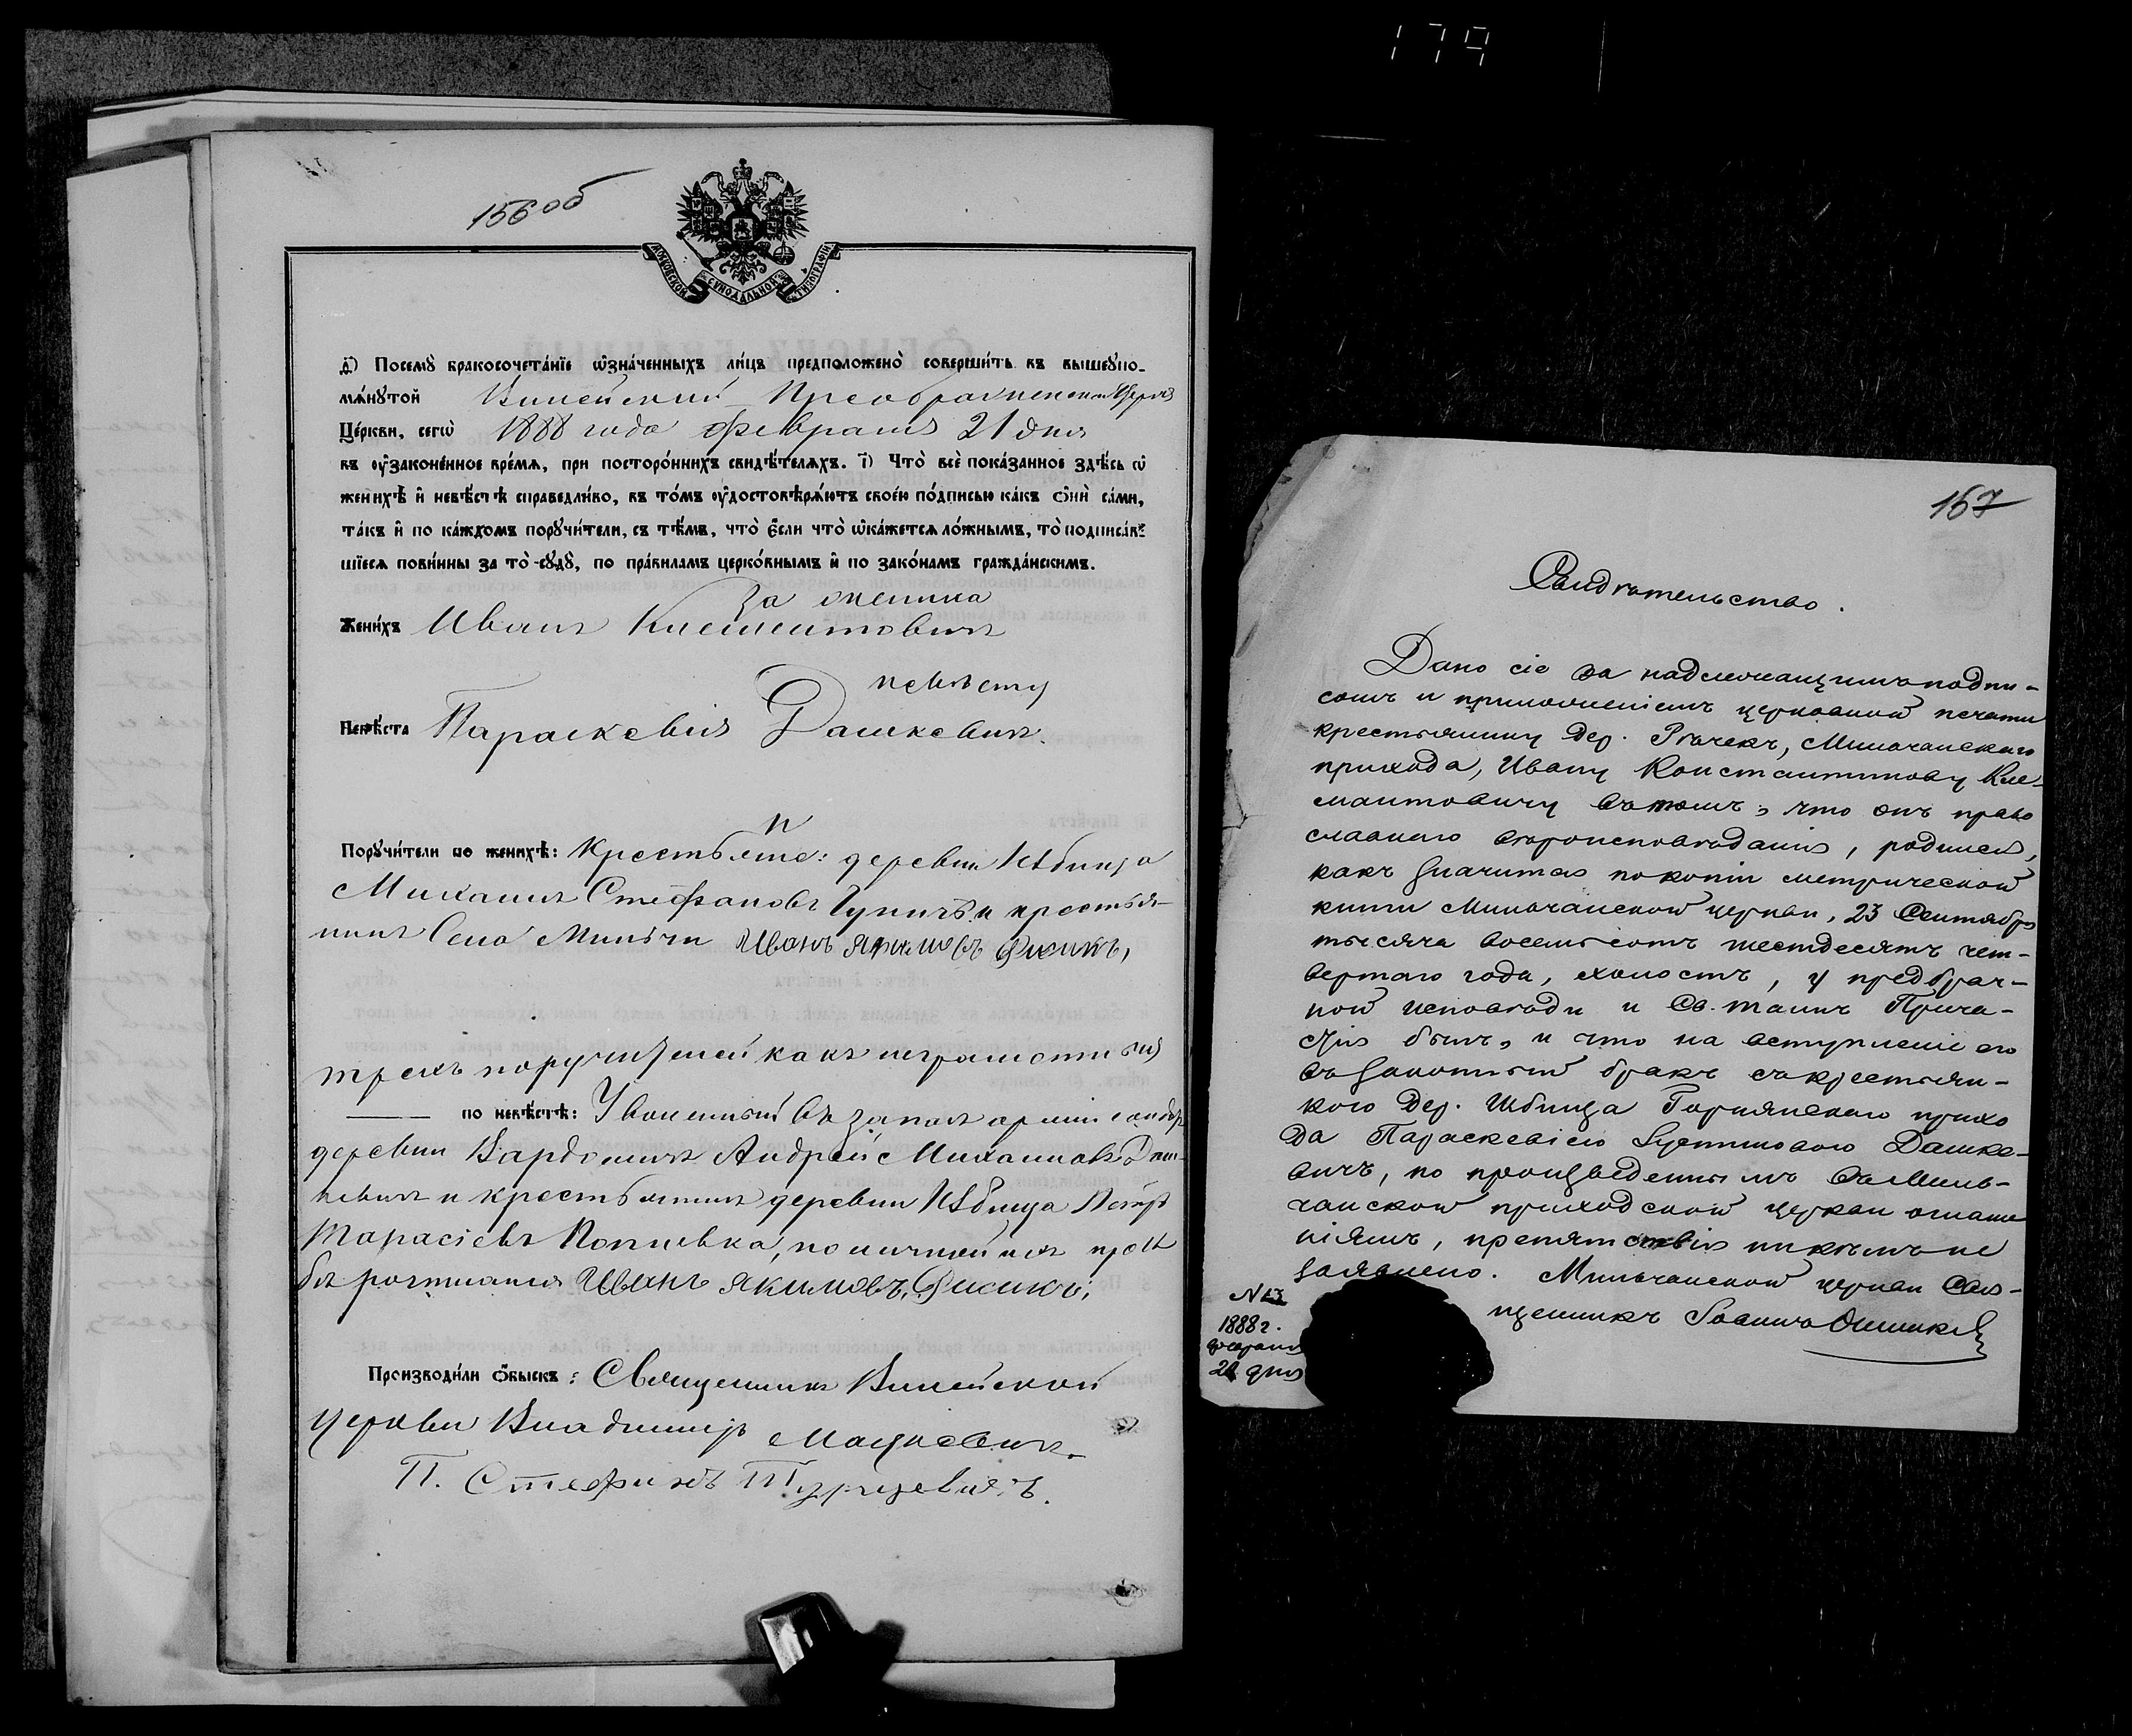 179
156 об
МОСКОВСКОЙ СѴНОДАЛЬНОЙ ТИПОГРАФІИ
Посемꙋ̀ бракосочета́нїе ѡ҆зна́ченныхъ ли́цъ предположено̀ соверши́ть въ вышеꙋпо-
мѧ́нꙋтой Вилейской Преображенской Церкви
Це́ркви, сегѡ̀ 1888 года февраля 21 дня
въ ᲂу҆зако́ненное вре́мѧ, при посторо́ннихъ свидѣ́телѧхъ. і҃) Что̀ всѐ пока́занное здѣ́сь ѡ҆
женихѣ̀ и҆ невѣ́стѣ справедли́во, въ то́мъ ᲂу҆достовѣрѧ́ютъ свое́ю по́дписью ка́къ ѻ҆нѝ са́ми,
та́къ и҆ по ка́ждомъ порꙋчи́тели, съ тѣ́мъ, что̀ є҆́сли что̀ ѡ҆ка́жетсѧ ло́жнымъ, то̀ подписа́в-
шїесѧ пови́нны за то̀ сꙋдꙋ̀, по пра́виламъ церко́внымъ и҆ по зако́намъ гражда́нскимъ.
за жениха
Жени́хъ Иванъ Клемантовичъ
невѣсту
Невѣ́ста Параскевія Дашкевичъ.
Порꙋчи́тели по женихѣ̀: Крестьяне: деревни Избища
Михаилъ Стефановъ и крестья-
нинъ Села Мильчи Иванъ Якимовъ Фисикъ,
трехъ поручителей какъ неграмотныхъ
по невѣ́стѣ: Уволенный въ запасъ арміи
деревни Андрей Михаиловъ Даш-
кевичъ и крестьянинъ деревни Избища Петръ
Тарасіевъ по личной ихъ прось
бѣ росписался Иванъ Якимовъ, Фисикъ,
Производи́ли ѻ҆́быскъ: Священникъ Вилейской
Церкви Владимиръ Мацкевичъ.
П. Стефанъ Турцевичъ.
157
Свидѣтельство.
Дано сіе за надлежащимъ подпи-
сомъ и приложеніемъ церковной печати
крестьянину дер. Рѣчекъ, Мильчанскаго
прихода, Ивану Константинову Кле-
мантовичу въ томъ, что онъ право
славнаго вѣроисповѣданія, родился,
какъ значится по копіи метрической
книги Мильчанской церкви, 23 Сентября
тысяча восемьсотъ шестдесятъ чет-
вертаго года, холостъ, у предбрач-
ной исповѣди и Св. таинъ Прича-
стія былъ, и что на вступленіе его
въ законный бракъ съ крестьян-
кою дер. Избища прихо
да Параскевіею Дашке-
вичъ, по произведеннымъ въ Миль-
чанской приходской церкви оглаше
ніямъ, препятствія никѣмъ не
заявлено. Мильчанской церкви Свя-
щенникъ Іоаннъ
N 13
1888 г.
февраля
21 дня